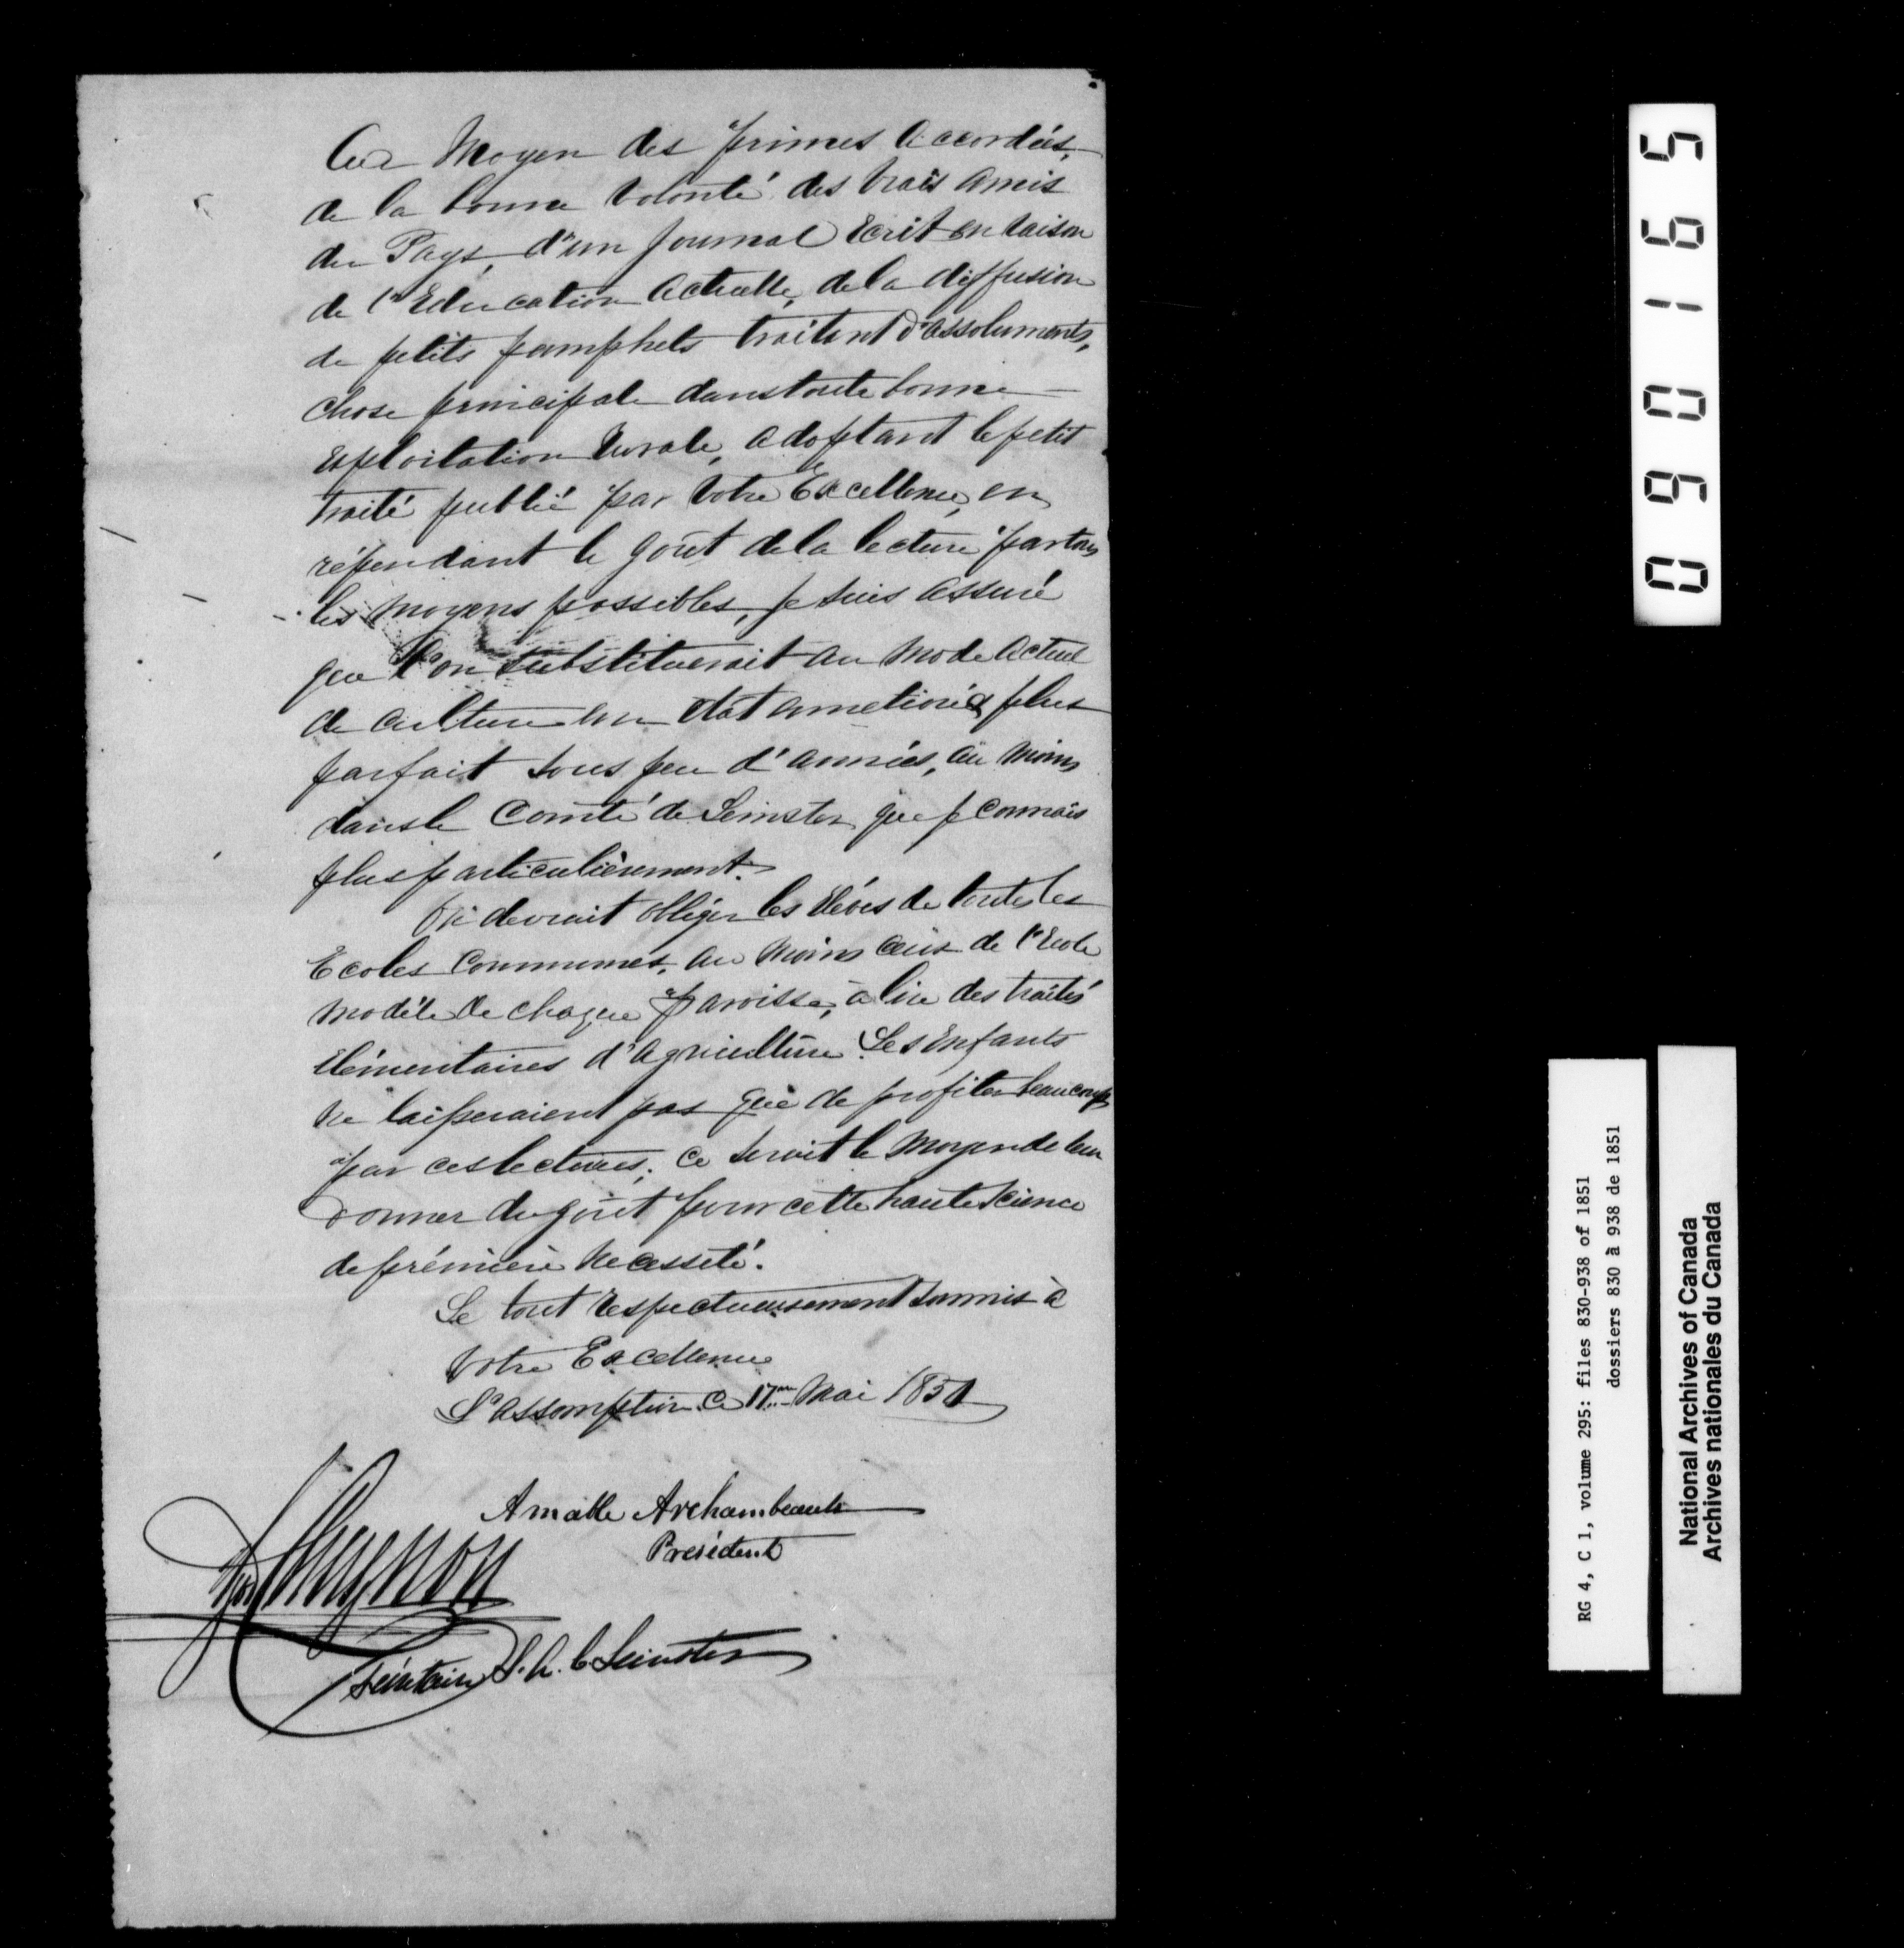 Au Moyen des primes Accordées,
de la bonne volonté des vrais Amis
du Pays, d'un Journal Ecrit en raison
de l'Education Actuelle, de la diffusion
de petits pamphets traitant d'assoluments,
chose principale dans toute bonne
Exploitation Rurale, adoptant le petit
traité publié par Votre Excellence, en
répendant le goût de la lecture par tous
les moyens possibles, je suis Assuré
que l'on substituerait au mode Actuel
de culture un état amelioré & plus
parfait sous peu d'années, au moins
dans le Comté de Leinster que je connais
plus particulièrement.
On devrait obliger les élèves de toutes les
Ecoles Communes, au moins ceux de l'Ecole
modèle de chaque paroisse, à lire des traités
Elémentaires d'Agriculture. Les Enfants
ne laisseraient pas que de profiter beaucoup
par ces lectures; ce serait le moyen de leur
donner du goût pour cette haute Science
de première Necessité.
Le tout respectueusement soumis à
Votre Excellence
L'Assomption ce 17me Mai 1851
Amable Archambeault
Président
Secrétaire S. A. C. Leinster
090165
RG 4, C 1, volume 295: files 830-938 of 1851
dossiers 830 à 938 de 1851
National Archives of Canada
Archives nationales du Canada